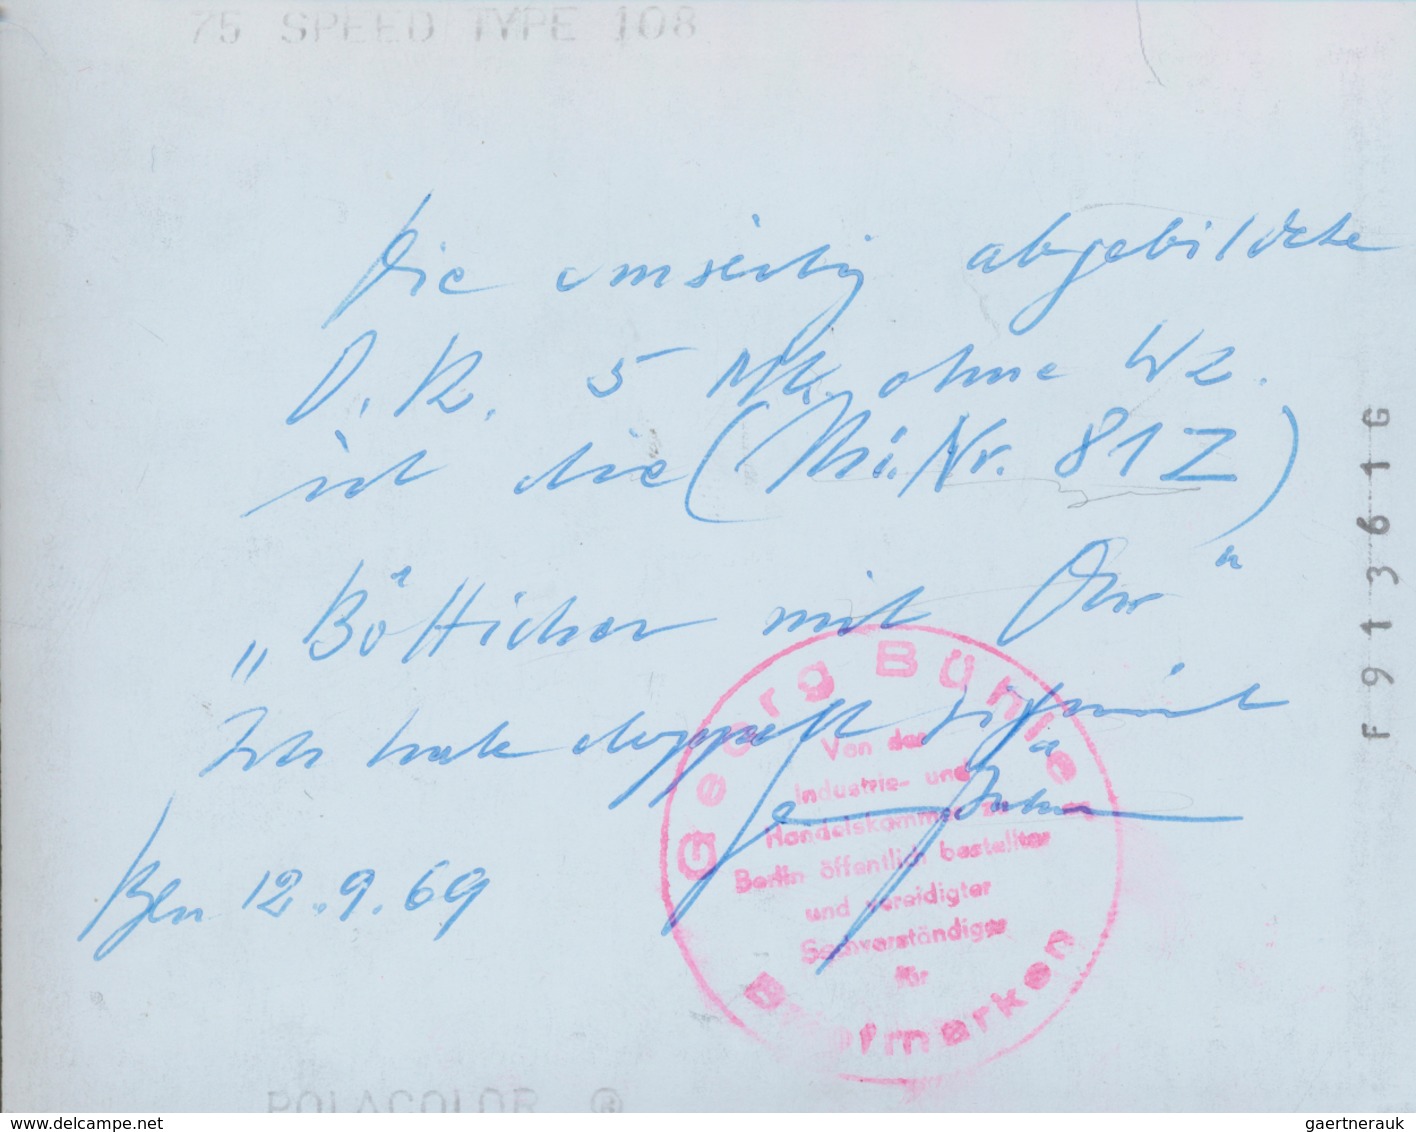 75 SPEED TYPE 108
Die umseitig abgebildete
D.R. 5 Mk. ohne Wz.
ist die (Mi.Nr. 81Z)
„Bötticher mit Ohr"
Ich habe doppelt signiert
Georg Bühler
Bln 12.9.69
Georg Bühler
Von der
Industrie- und
Handelskammer zu
Berlin öffentlich bestellter
und vereidigter
Sachverständiger
für
Briefmarken
F 9 1 3 6 1 G
POLACOLOR ®
www.delcampe.net
gaertnerauk